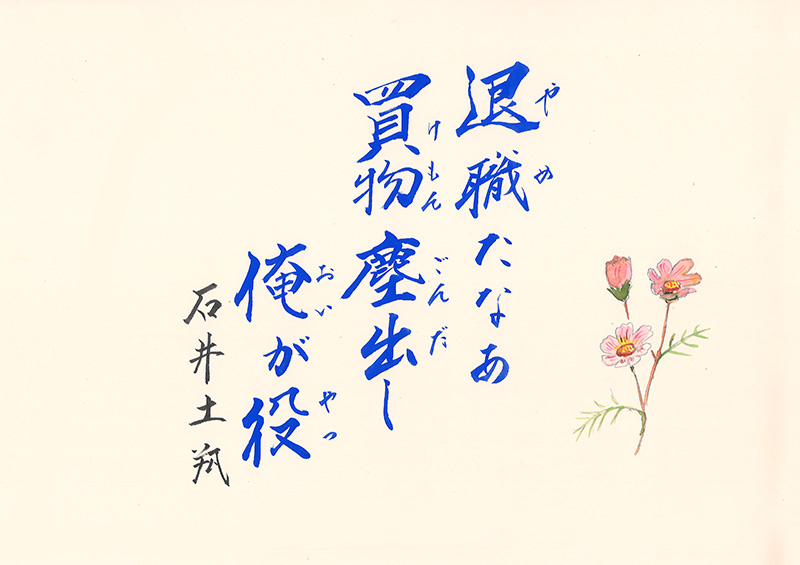 退職たなあ
やめ
買物塵出し
けもんごんだ
俺が役
おいやっ
石井土翔